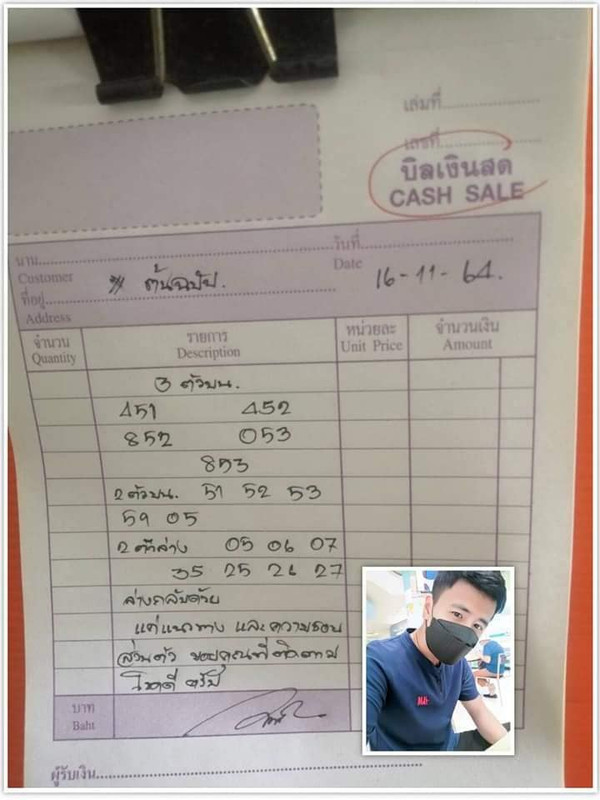 เล่มที่
เลขที่
บิลเงินสด
CASH SALE
นาม
วันที่
Customer
** ต้นฉบับ.
Date
16-11-64.
ที่อยู่
Address
จำนวน รายการ หน่วยละ จำนวนเงิน
Quantity Description Unit Price Amount
3 ตัวบน.
451 452
852 053
853
2 ตัวบน. 51 52 53
59 05
2 ตัวล่าง 05 06 07
35 25 26 27
ล่างกลับด้วย
แค่แนวทาง และความชอบ
ส่วนตัว ขอบคุณที่ติดตาม
โชคดี ครับ
บาท
Baht
ผู้รับเงิน